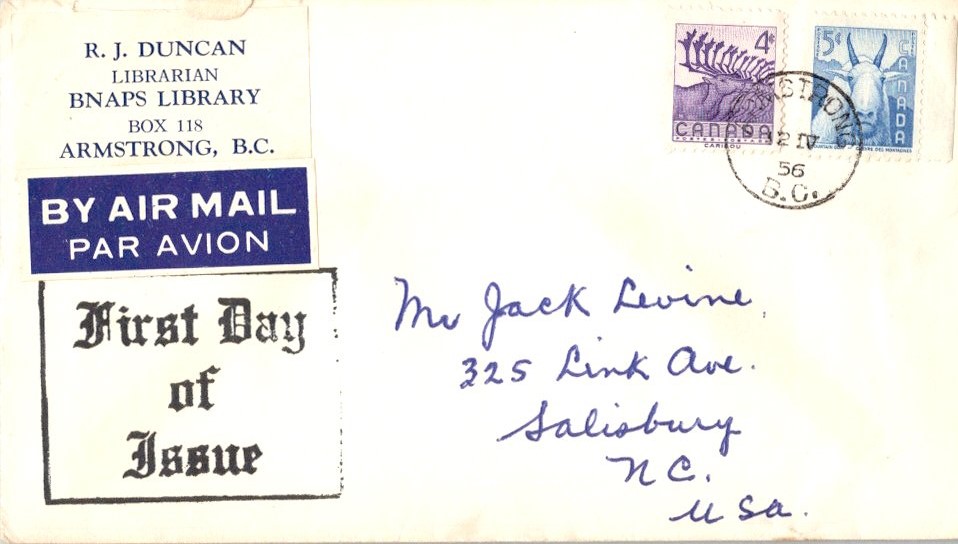 R. J. DUNCAN
LIBRARIAN
BNAPS LIBRARY
BOX 118
ARMSTRONG, B.C.
BY AIR MAIL
PAR AVION
First Day
of
Issue
4¢
CANADA
POSTES POSTAGE
CARIBOU
5¢
CANADA
CHÈVRE DES MONTAGNES
ARMSTRONG
2 IV
56
B.C.
Mr Jack Levine,
325 Link Ave.
Salisbury
N.C.
USa.